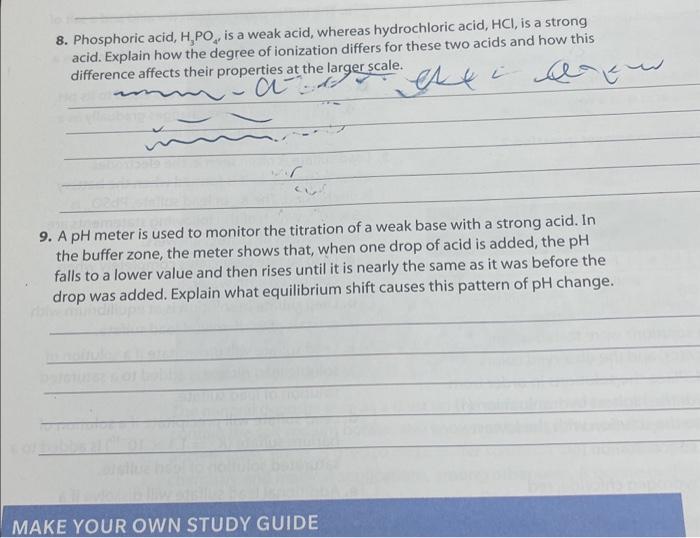 8. Phosphoric acid, H₃PO₄, is a weak acid, whereas hydrochloric acid, HCl, is a strong
acid. Explain how the degree of ionization differs for these two acids and how this
difference affects their properties at the larger scale.
9. A pH meter is used to monitor the titration of a weak base with a strong acid. In
the buffer zone, the meter shows that, when one drop of acid is added, the pH
falls to a lower value and then rises until it is nearly the same as it was before the
drop was added. Explain what equilibrium shift causes this pattern of pH change.
MAKE YOUR OWN STUDY GUIDE